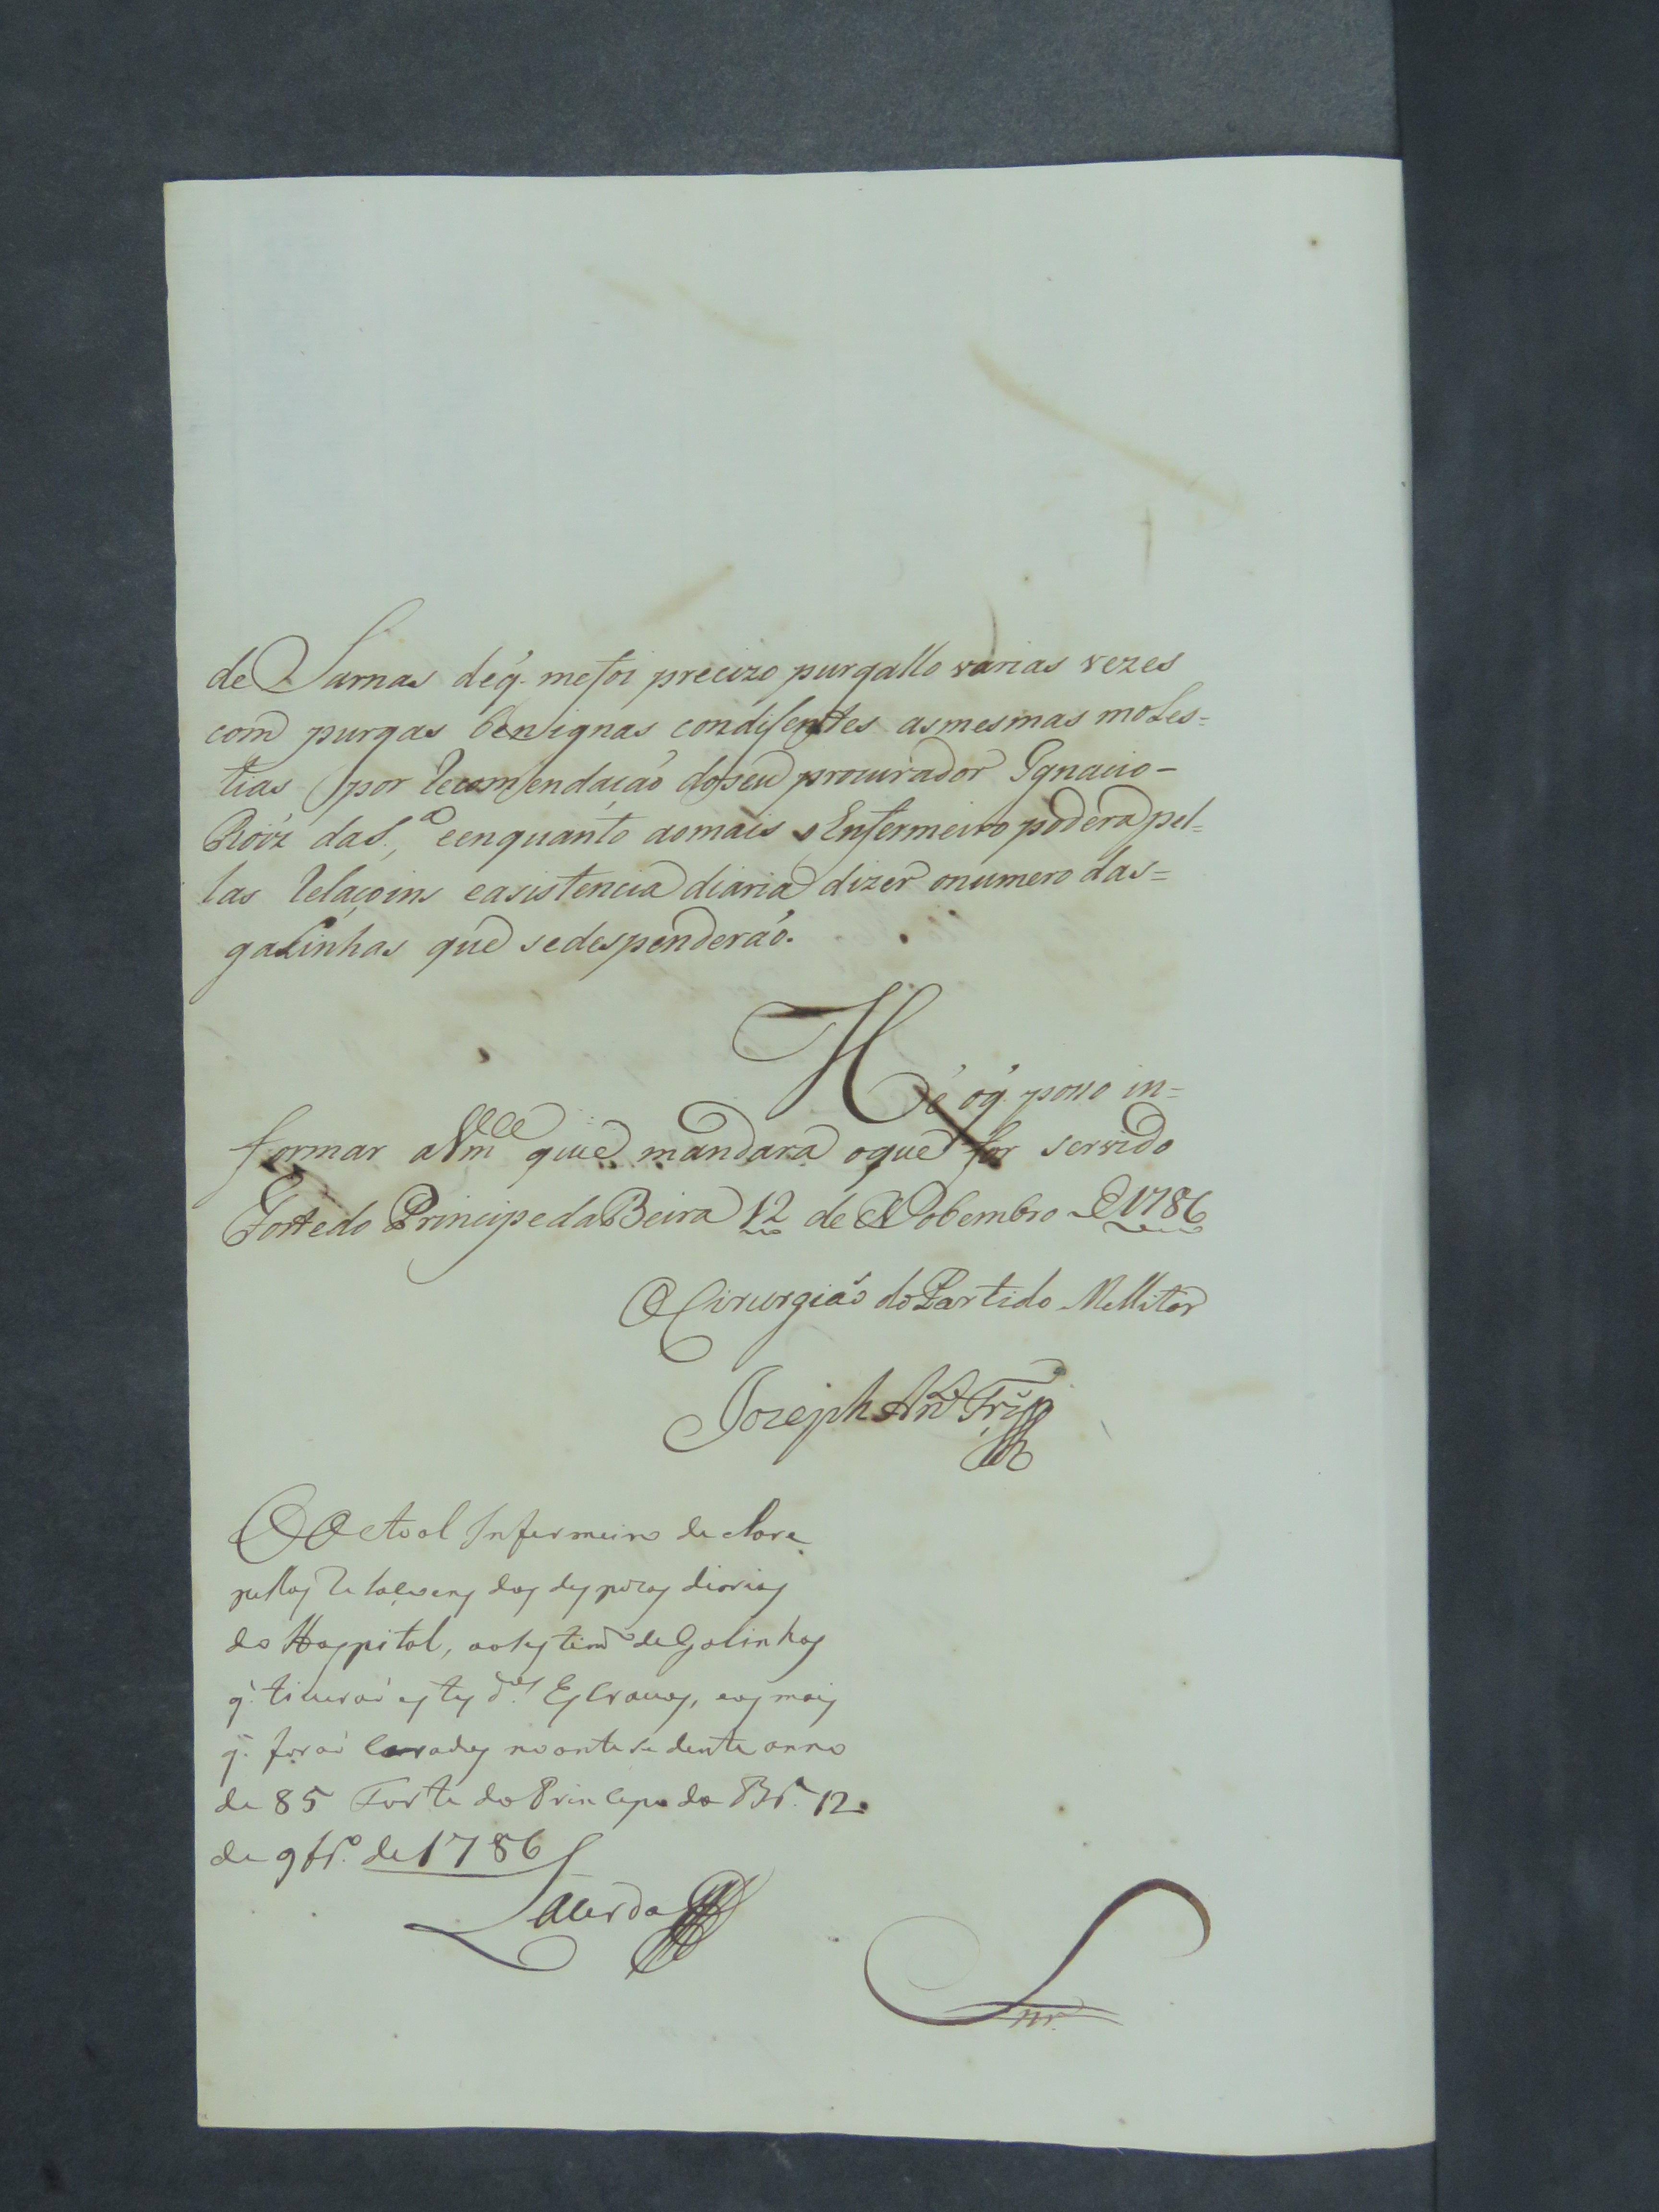 de Sarnas deq̃. mefoi precizo purgallo varias vezes
com purgas benignas condisentes asmesmas moles=
tias por Recomendaçaõ doseu procurador Ignacio-
Roiz daS.ᵃ eenquanto aomais o Enfermeiro poderá pel=
las Relaçoins easistencia diaria dizer onumero das=
galinhas que sedespenderaõ.
Hé oq̃ posso in=
formar aVm.ᶜᵉ que mandara oque for servido
Forte do Principe da Beira 12 de Nobembro de 1786
O Cirurgiaõ do Partido Mellitar
Jozeph Anᵗ.
O Actual Infermeiro declare
pellas Relaçoens das despezas diarias
do Hospital, de Galinhas
q̃. tiveraõ estes d.ᵒˢ Escravos, eos mais
q̃. foraõ Curados no antesedente anno
de 85 Forte do Princepe da Br.ᵃ 12
de 9br.º de 1786
Lacerda
Snr.